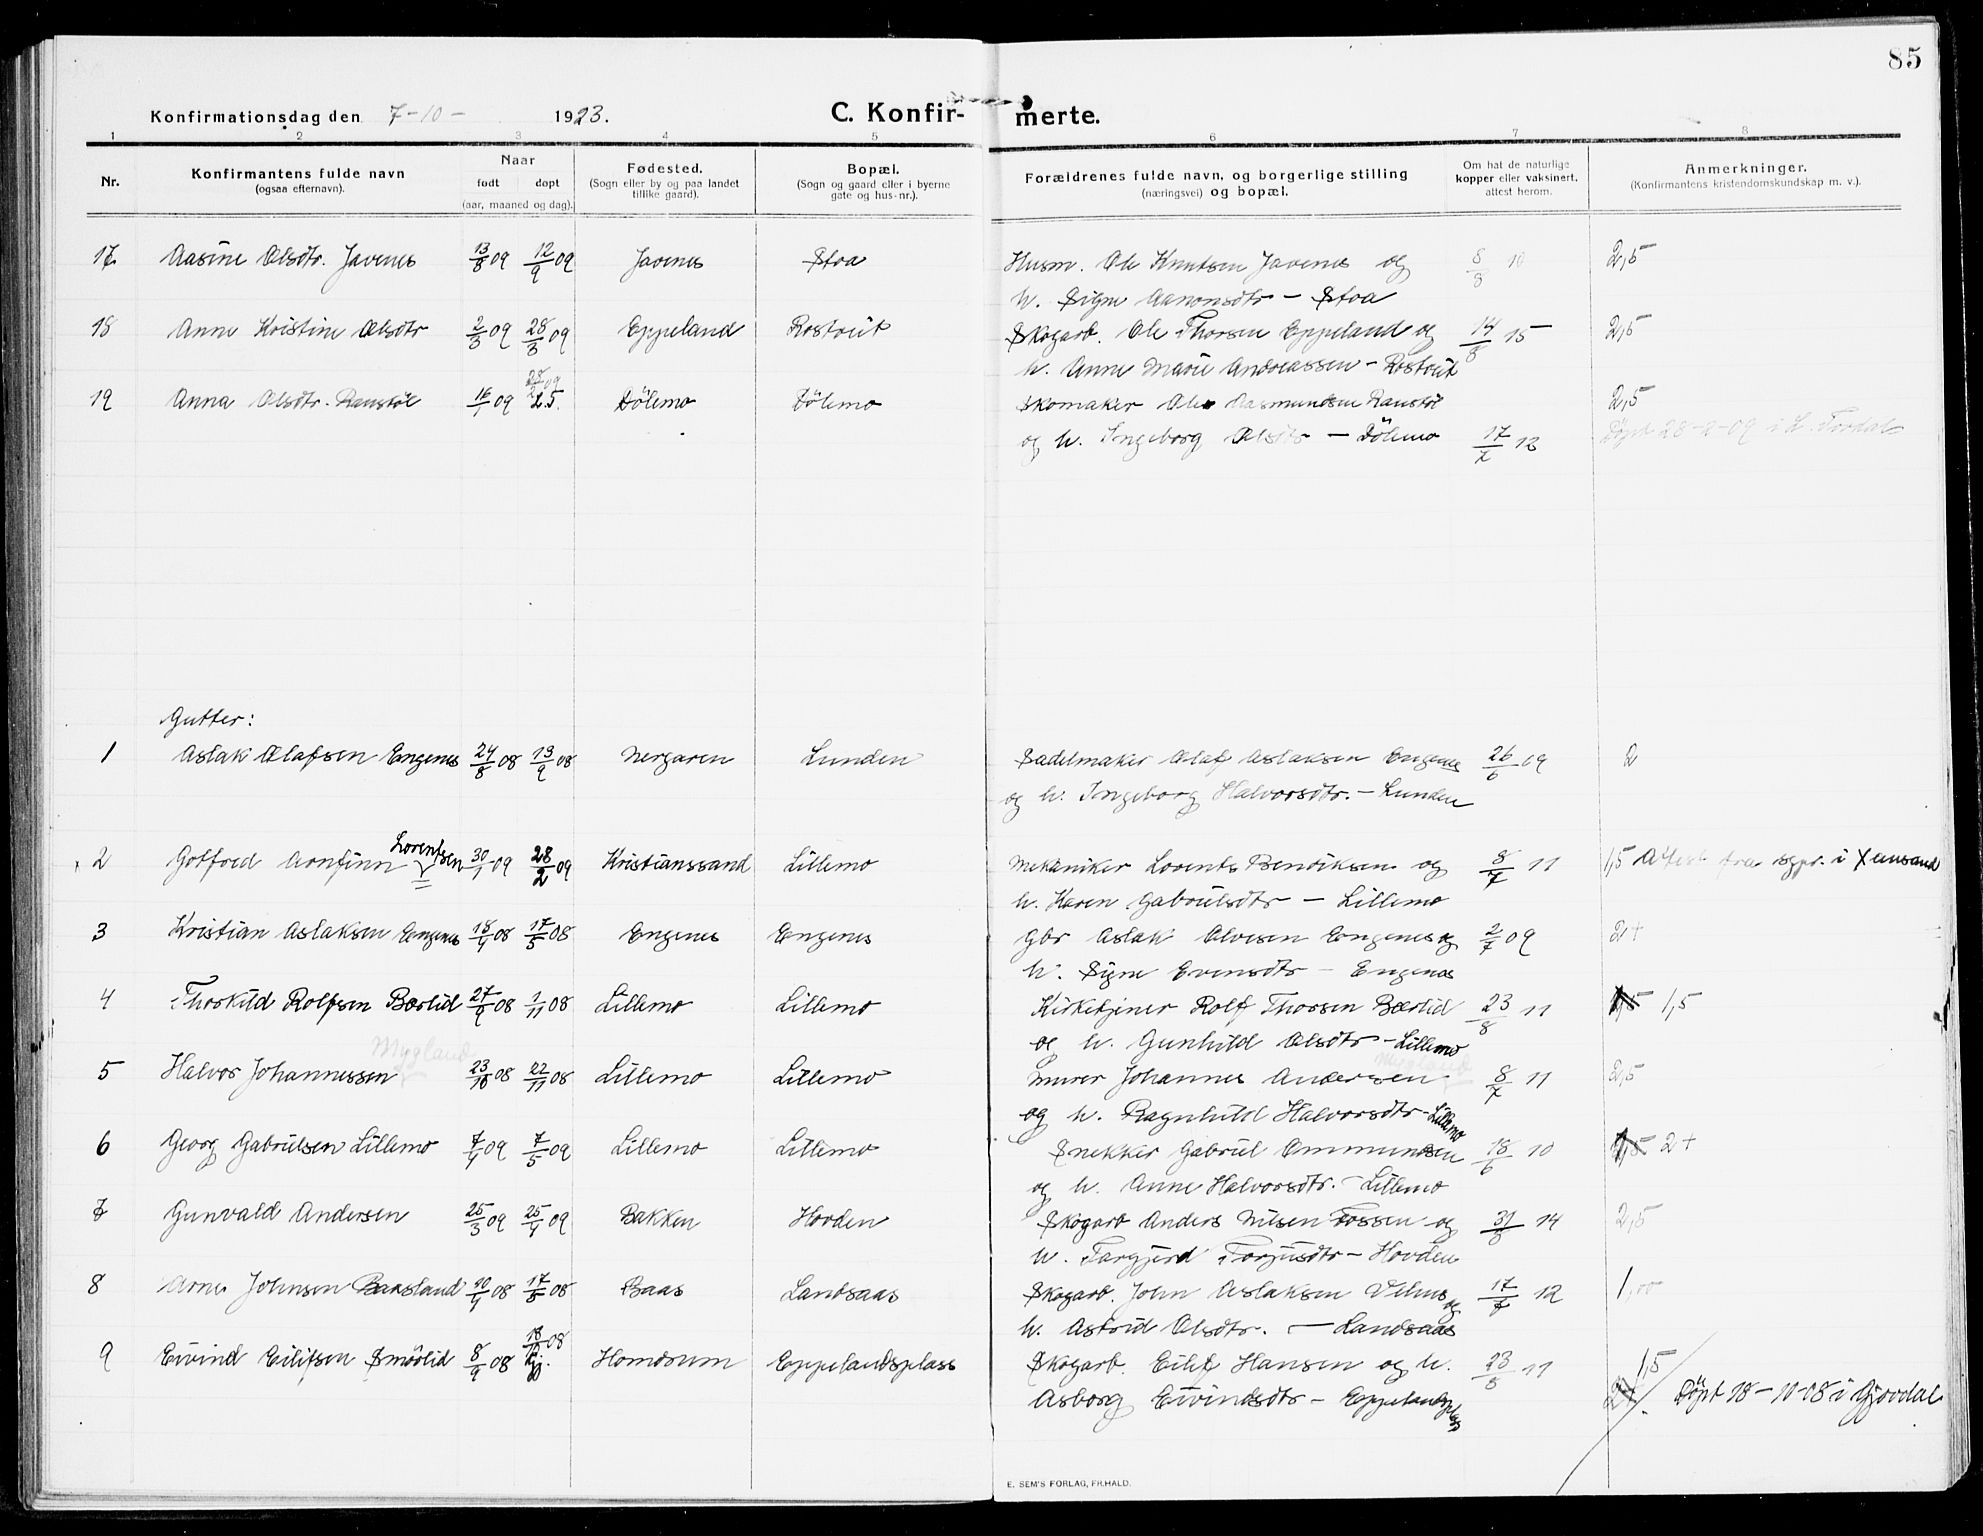 85
Konfirmationsdag den 7-10- 1923. C. Konfir- merte.
1 2 3 4 5 6 7 8
Nr. Konfirmantens fulde navn (ogsaa efternavn). Naar født døpt (aar, maaned og dag). Fødested. (Sogn eller by og paa landet tillike gaard). Bopæl. (Sogn og gaard eller i byerne gate og hus-nr.). Forældrenes fulde navn, og borgerlige stilling (næringsvei) og bopæl. Om hat de naturlige kopper eller vaksinert, attest herom. Anmerkninger. (Konfirmantens kristendomskundskap m. v.).
17 Aasine Olsdtr. Javenes 13/8 09 12/9 09 Javenes Stoa Husm. Ole Knutsen Javenes og 8/8 10 2,5
h. Signe Aanonsdtr - Stoa
18 Anne Kristine Olsdtr 2/3 09 28/3 09 Eppeland Rostveit Skogarb. Ole Thorsen Eppeland og 14/8 15 2,5
h. Anne Marie Andreassen - Rostveit
19 Anna Olsdtr. Ranstøl 16/1 09 28/2 09 Dölemo Dölemo Skomaker Ole Aasmundsen Ranstøl 2,5
og h. Ingeborg Olsdtr - Dölemo 17/7 12 Døpt 28-2-09 i
Gutter:
1 Aslak Olafsen Engenes 24/8 08 13/9 08 Nergaren Lunden Sadelmaker Olaf Aslaksen Engenes 26/6 09 2
og h. Ingeborg Halvorsdtr. - Lunden
2 Gotfred Arnfinn Lorentsen 30/1 09 28/2 09 Kristianssand Lillemo Mekaniker Lorents Bendiksen og 8/7 11 1,5 Attest fra sgpr. i Xansand
h. Karen Gabrielsdtr - Lillemo
3 Kristian Aslaksen Engenes 18/4 08 17/5 08 Engenes Engenes Gbr Aslak Olvesen Engenes og 2/7 09 2+
h. Signe Evensdtr - Engenes
4 Thorkild Rolfsen Bærlid 27/9 08 1/11 08 Lillemo Lillemo Kirketjener Rolf Thorsen Bærlid 23/8 11 1,5
og h. Gunhild Olsdtr - Lillemo
Mygland Mygland
5 Halvor Johannessen 23/10 08 22/11 08 Lillemo Lillemo Murer Johannes Andersen 8/7 11 2,5
og h. Ragnhild Halvorsdtr - Lillemo
6 Georg Gabrielsen Lillemo 7/4 09 7/5 09 Lillemo Lillemo Snekker Gabriel Ommundsen 18/6 10 2+
og h. Anne Halvorsdtr. - Lillemo
7 Gunvald Andersen 25/3 09 25/4 09 Bakken Hovden Skogarb Anders Nilsen Fossen og 31/8 14 2,5
h. Targjerd Torjusdtr - Hovden
8 Arne Johnsen Baasland 10/4 08 17/5 08 Baas Landsaas Skogarb. John Aslaksen og 17/7 12 1,00
h. Astrid Olsdtr. - Landsaas
9 Eivind Eilifsen Smörlid 8/9 08 18/10 08 Homdrum Eppelandsplass Skogarb. Eilif Hansen og h. 23/8 11 1,5
Asborg Eivindsdtr - Eppelandsplass Döpt 18-10-08 i Gjovdal
E. SEM'S FORLAG, FR.HALD.